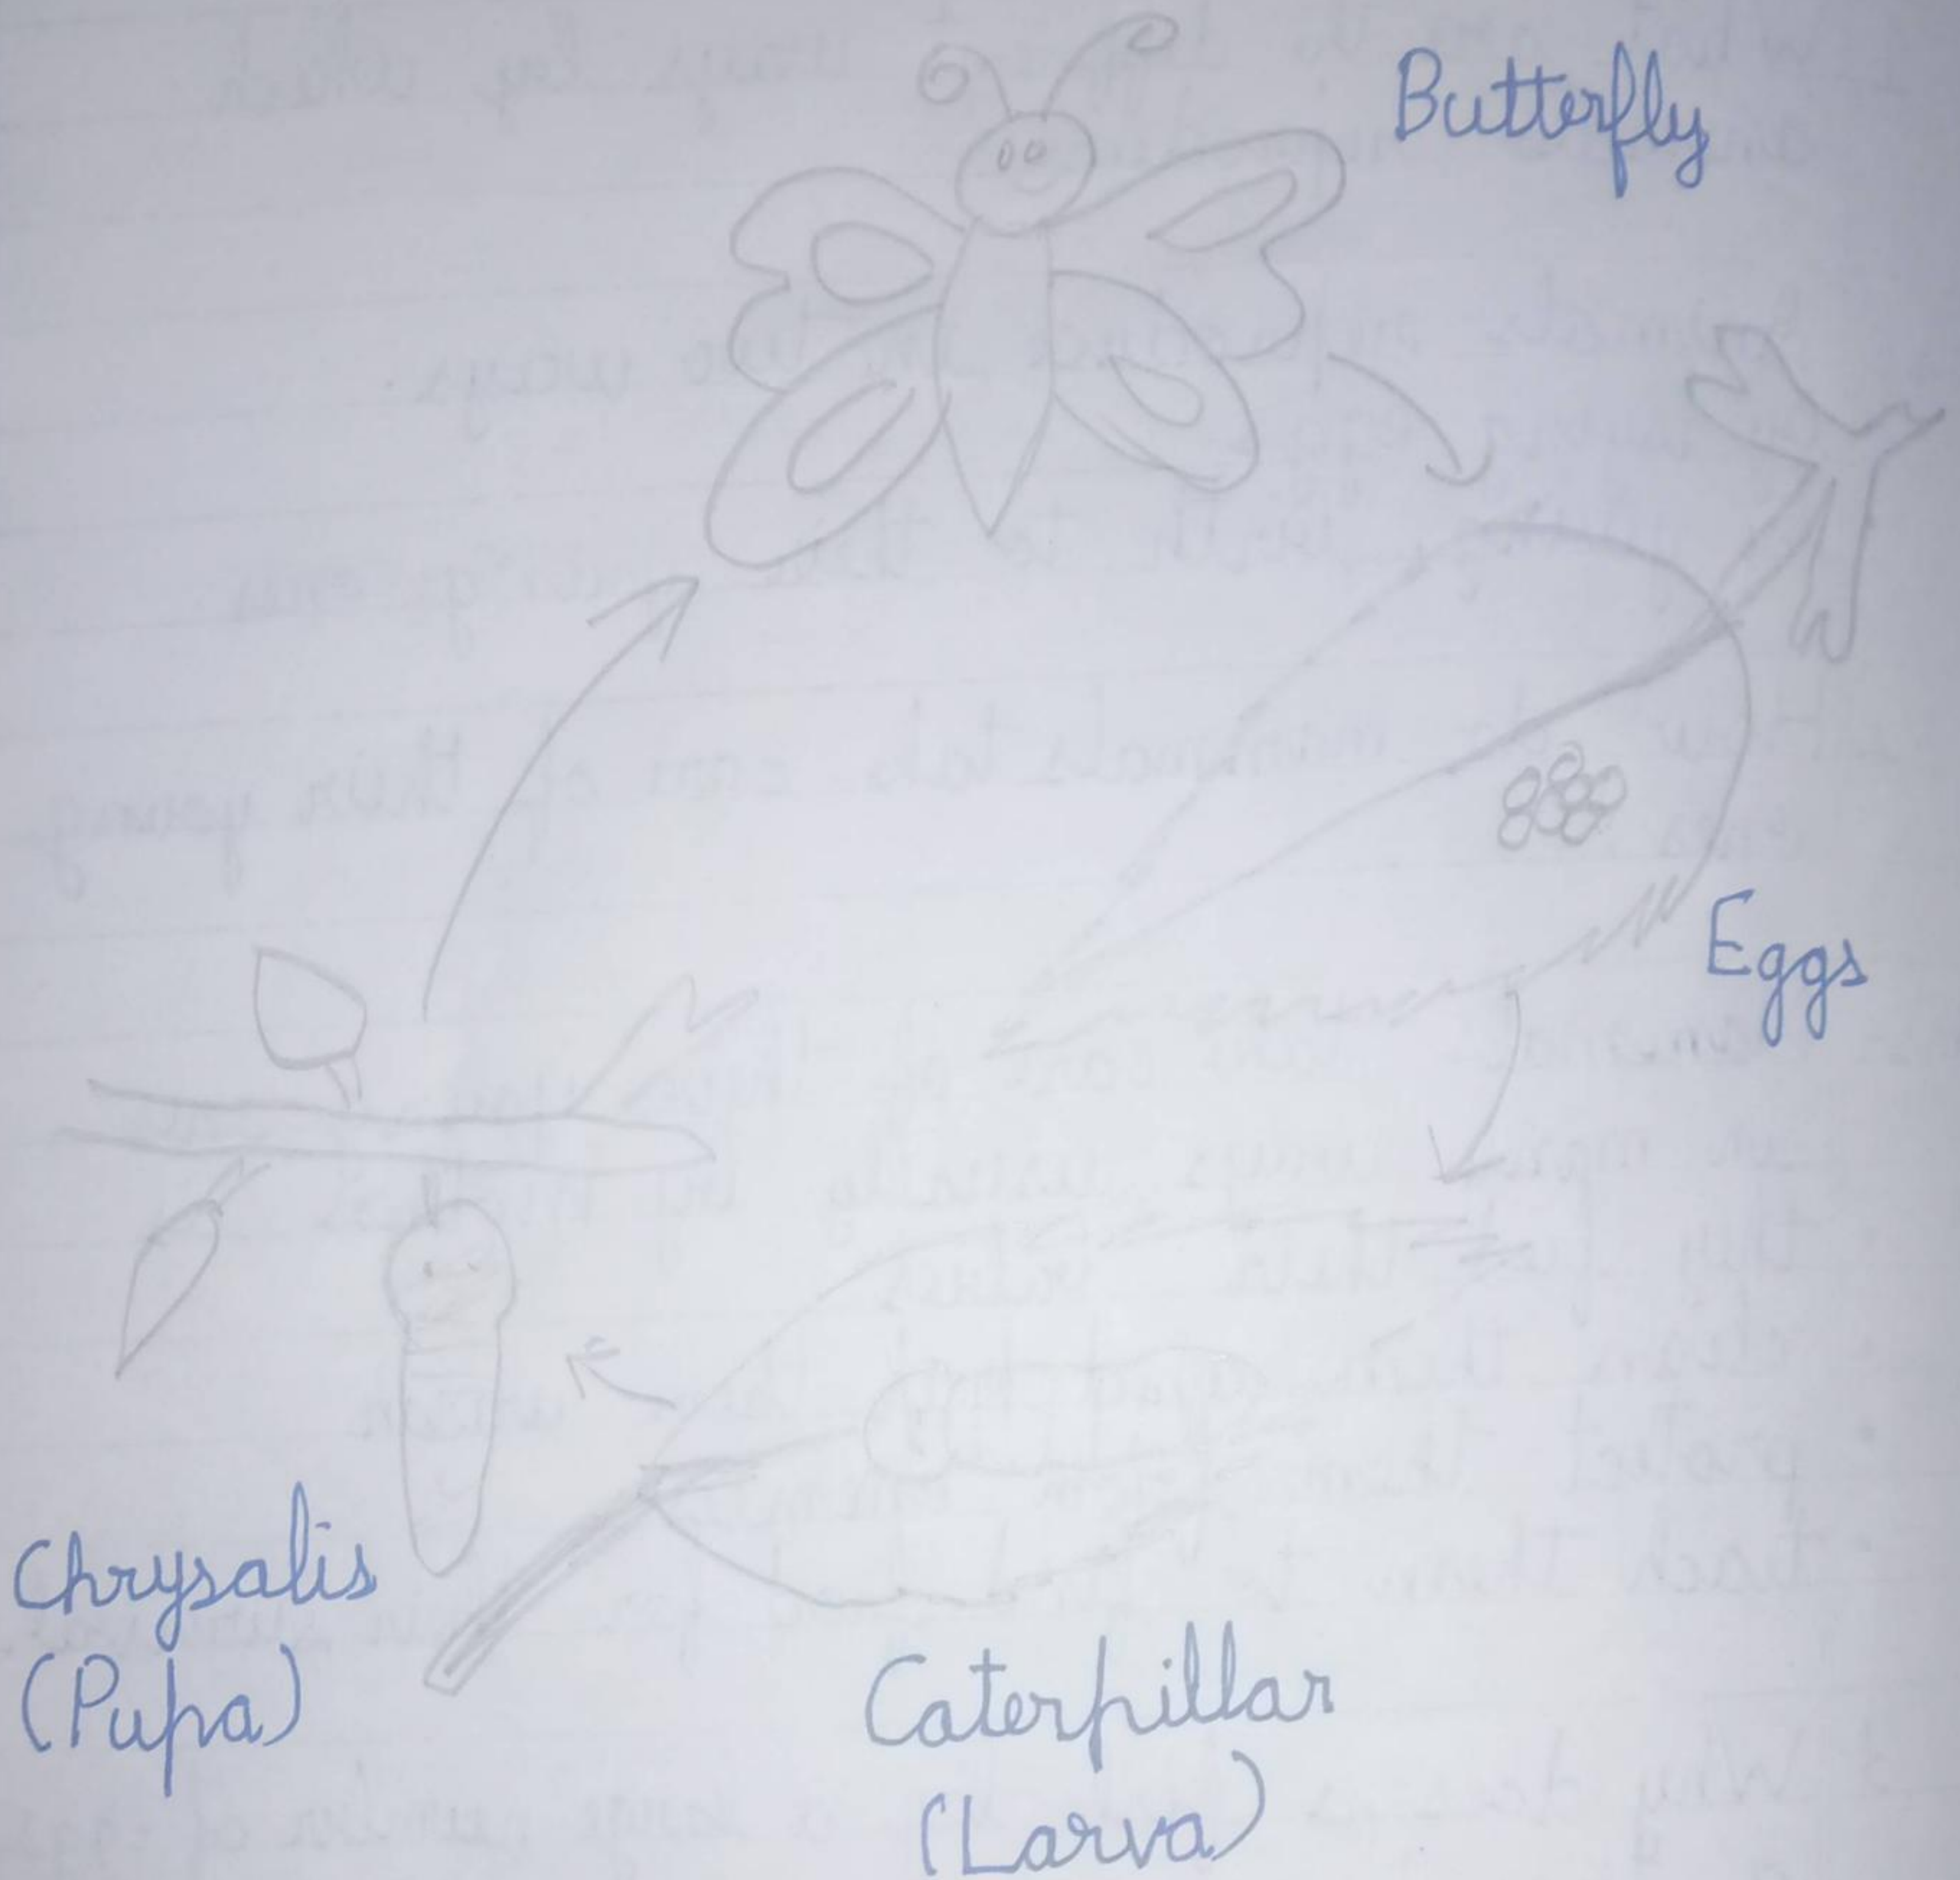 Butterfly
Eggs
Chrysalis
(Pupa)
Caterpillar
(Larva)